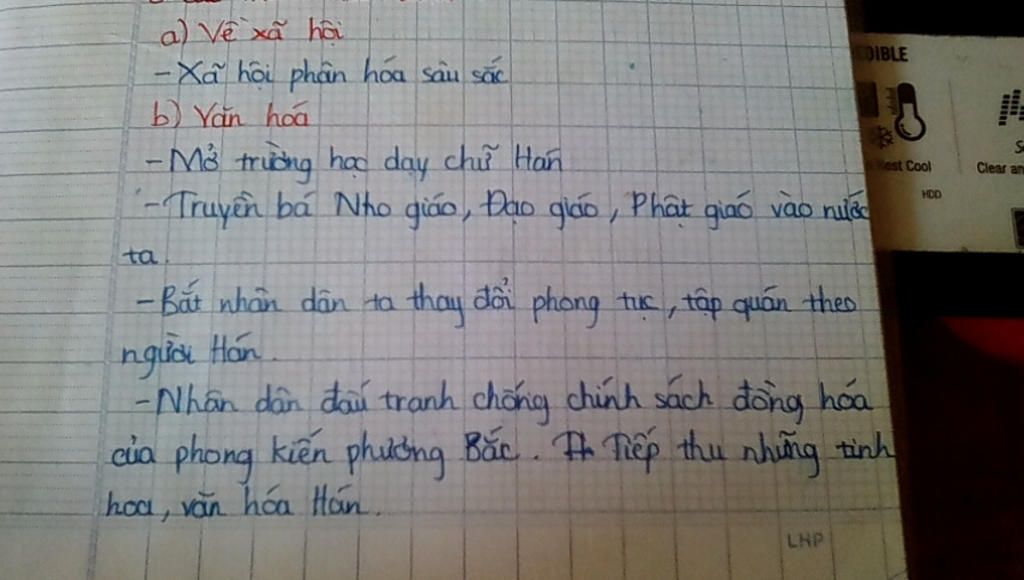 a) Về xã hội
- Xã hội phân hóa sâu sắc
b) Văn hoá
- Mở trường học dạy chữ Hán
- Truyền bá Nho giáo, Đạo giáo, Phật giáo vào nước
ta.
- Bắt nhân dân ta thay đổi phong tục, tập quán theo
người Hán.
- Nhân dân đấu tranh chống chính sách đồng hóa
của phong kiến phương Bắc. Tiếp thu những tinh
hoa, văn hóa Hán.
LHP
DIBLE
est Cool
Clear an
HDD